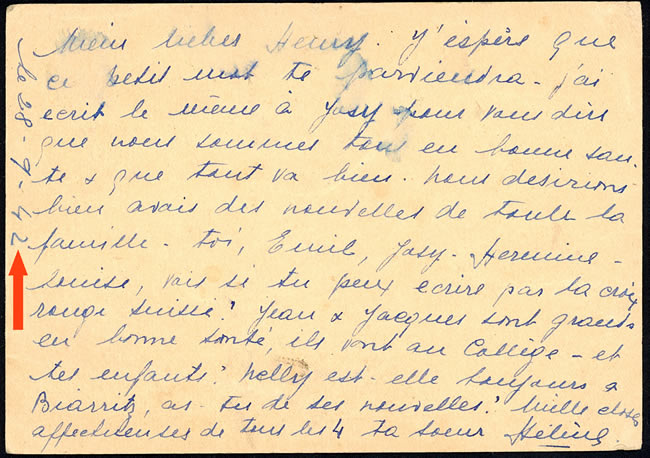 le 28-9-42
Mein liebes Henry. J'espère que
ce petit mot te parviendra - j'ai
ecrit le même à Josy pour vous dire
que nous sommes tous en bonne san-
te & que tout va bien. Nous desirions
bien avais des nouvelles de toute la
famille - toi, Emil, Josy - Hermine -
Louise, vois si tu peux ecrire par la croix
rouge suisse? Jean & Jacques sont grands
en bonne santé, ils vont au Collège - et
tes enfants? Nelly est-elle toujours à
Biarritz, as-tu de ses nouvelles? Mille choses
affectueuses de tous les 4 ta soeur Hélène.